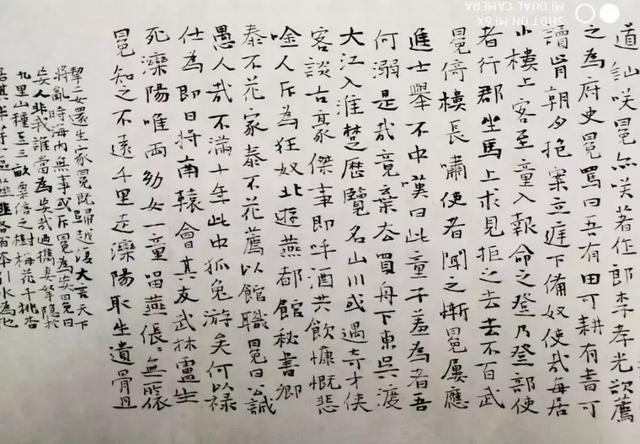 道訕咲冕亦咲著作郎李孝光欲薦
之為府史冕罵曰吾有田可耕有書可
讀肯朝夕抱案立庭下備奴使哉每居
小樓上客至童入報命之登乃登部使
者行郡坐馬上求見拒之去去不百武
冕倚樓長肅使者聞之慚冕屢應
進士舉不中嘆曰此童子羞為者吾
何溺是哉竟棄去買舟下東吳渡
大江入淮楚歷覽名山川或遇奇才俠
客談古豪傑事即呼酒共飲慷慨悲
唫人斥為狂奴北遊燕都館秘書卿
泰不花家泰不花薦以館職冕曰公誠
愚人哉不滿十年此中狐兔游矣何以祿
仕為即日將南轅會其友武林盧生
死灤陽唯兩幼女一童留燕倀〻無所依
冕知之不遠千里走灤陽取生遺骨且
挈二女還生家冕既歸越復大言天下
將亂時海內無事或斥冕為妄冕曰
妄人非我誰當為妄哉迺攜妻孥隱於
九里山種豆三畝粟倍之樹梅花千桃杏
居其半芋一區薤韭各百本引水為池
SHOT ON MI 8X
MI DUAL CAMERA